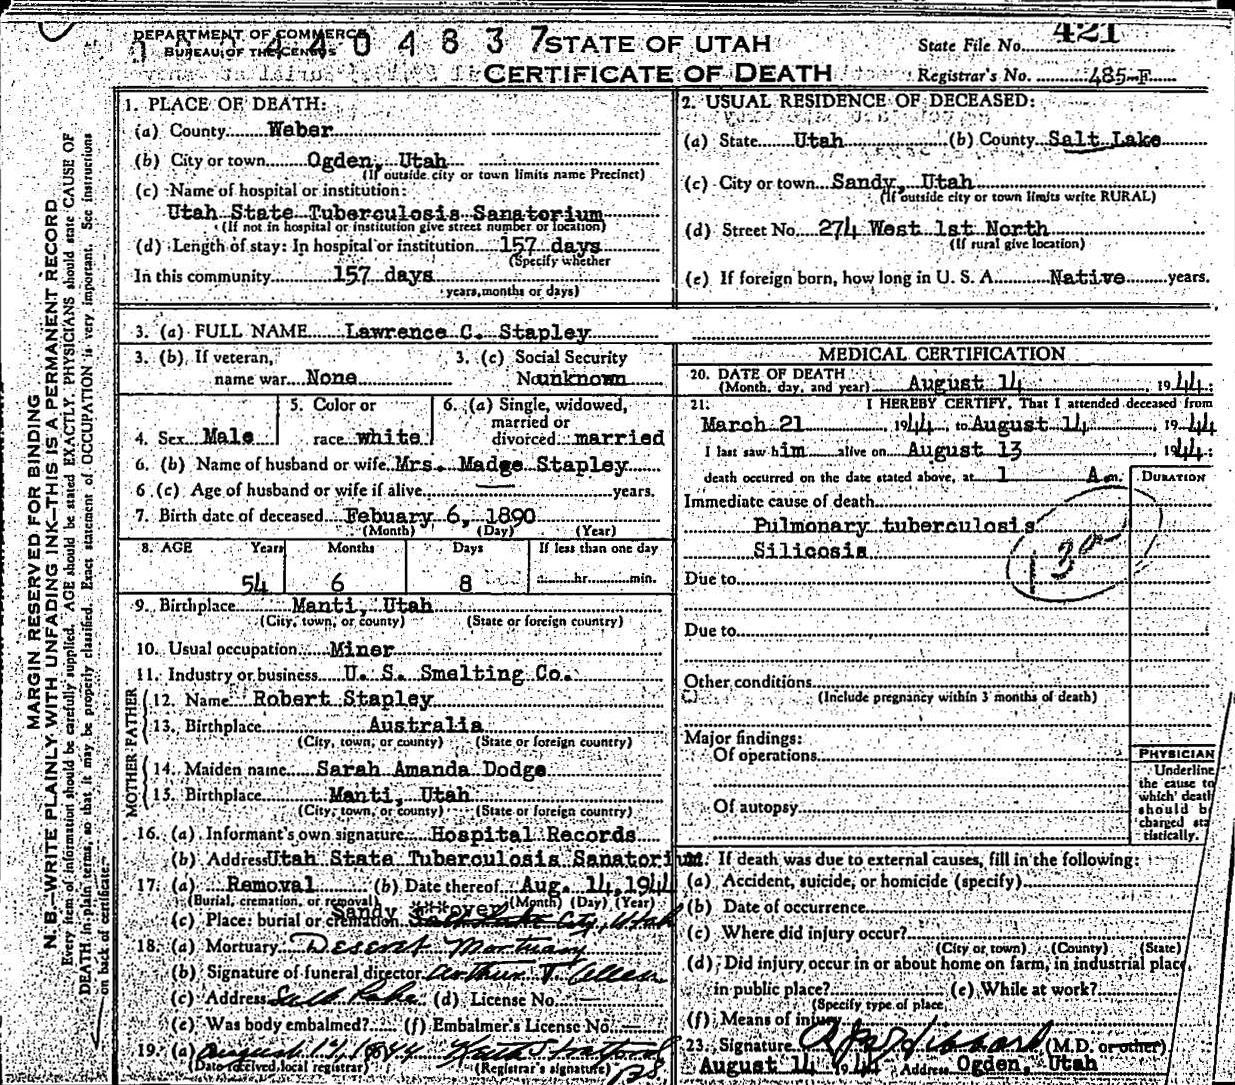 DEPARTMENT OF COMMERCE
BUREAU OF THE CENSUS
4 4 0 4 8 3 7
STATE OF UTAH
CERTIFICATE OF DEATH
State File No. 421
Registrar's No. 485-F
MARGIN RESERVED FOR BINDING
N. B.—WRITE PLAINLY WITH UNFADING INK—THIS IS A PERMANENT RECORD
Every item of information should be carefully supplied. AGE should be stated EXACTLY. PHYSICIANS should state CAUSE OF
DEATH in plain terms, so that it may be properly classified. Exact statement of OCCUPATION is very important. See instructions
on back of certificate.
1. PLACE OF DEATH:
(a) County Weber
(b) City or town Ogden, Utah
(If outside city or town limits name Precinct)
(c) Name of hospital or institution:
Utah State Tuberculosis Sanatorium
(If not in hospital or institution give street number or location)
(d) Length of stay: In hospital or institution 157 days
(Specify whether
In this community 157 days
years, months or days)
2. USUAL RESIDENCE OF DECEASED:
(a) State Utah (b) County Salt Lake
(c) City or town Sandy, Utah
(If outside city or town limits write RURAL)
(d) Street No. 274 West 1st North
(If rural give location)
(e) If foreign born, how long in U. S. A. Native years.
3. (a) FULL NAME Lawrence C. Stapley
3. (b) If veteran,
name war None
3. (c) Social Security
No unknown
4. Sex Male
5. Color or
race white
6. (a) Single, widowed,
married or
divorced married
6. (b) Name of husband or wife Mrs. Madge Stapley
6 (c) Age of husband or wife if alive years.
7. Birth date of deceased Febuary 6, 1890
(Month) (Day) (Year)
8. AGE Years Months Days If less than one day
54 6 8 hr. min.
9. Birthplace Manti, Utah
(City, town, or county) (State or foreign country)
10. Usual occupation Miner
11. Industry or business U. S. Smelting Co.
FATHER
12. Name Robert Stapley
13. Birthplace Australia
(City, town, or county) (State or foreign country)
MOTHER
14. Maiden name Sarah Amanda Dodge
15. Birthplace Manti, Utah
(City, town, or county) (State or foreign country)
16. (a) Informant's own signature Hospital Records
(b) Address Utah State Tuberculosis Sanatorium
17. (a) Removal (b) Date thereof Aug. 14, 1944
(Burial, cremation, or removal) (Month) (Day) (Year)
(c) Place: burial or cremation Sandy Salt Lake City, Utah
18. (a) Mortuary Deseret Mortuary
(b) Signature of funeral director Arthur
(c) Address Salt Lake (d) License No.
(e) Was body embalmed? (f) Embalmer's License No.
19. (a) August 14, 1944 Keith Stratford
(Date received, local registrar) (Registrar's signature)
MEDICAL CERTIFICATION
20. DATE OF DEATH
(Month, day, and year) August 14, 1944
21. I HEREBY CERTIFY, That I attended deceased from
March 21, 1944 to August 14, 1944
I last saw him alive on August 13 1944
death occurred on the date stated above, at 1 A m.
DURATION
Immediate cause of death
Pulmonary tuberculosis
Silicosis
Due to
Due to
Other conditions
(Include pregnancy within 3 months of death)
Major findings:
Of operations
Of autopsy
PHYSICIAN
Underline
the cause to
which death
should b
charged sta
tistically.
22. If death was due to external causes, fill in the following:
(a) Accident, suicide, or homicide (specify)
(b) Date of occurrence
(c) Where did injury occur?
(City or town) (County) (State)
(d) Did injury occur in or about home on farm, in industrial place,
in public place? (e) While at work?
(Specify type of place
(f) Means of injury
23. Signature Hibbard (M.D. or other)
August 14 1944 Address Ogden, Utah